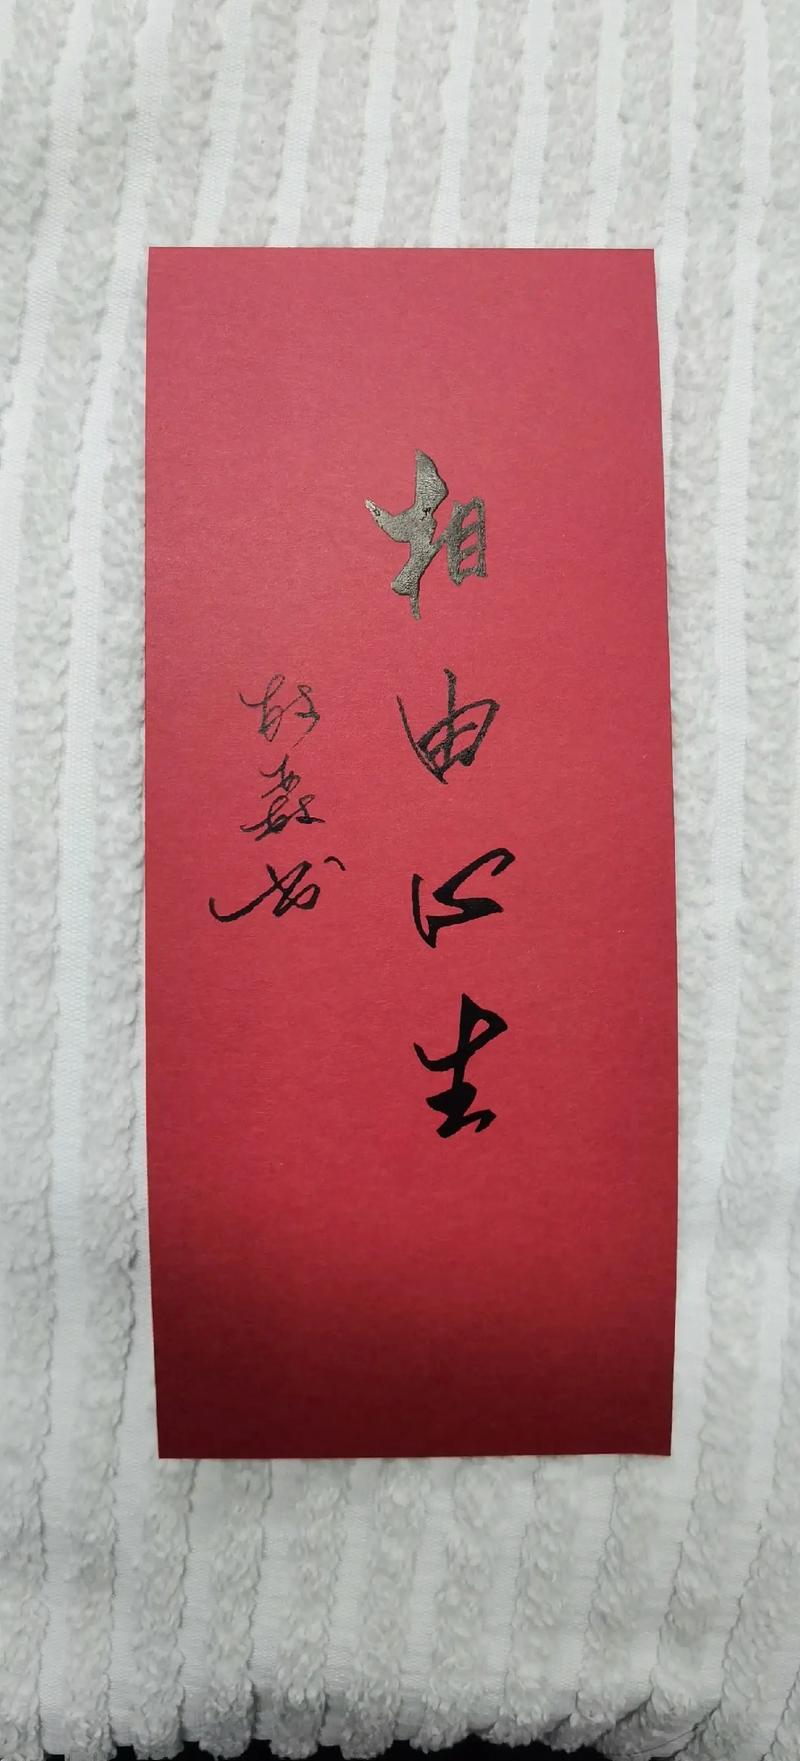 相由心生
书